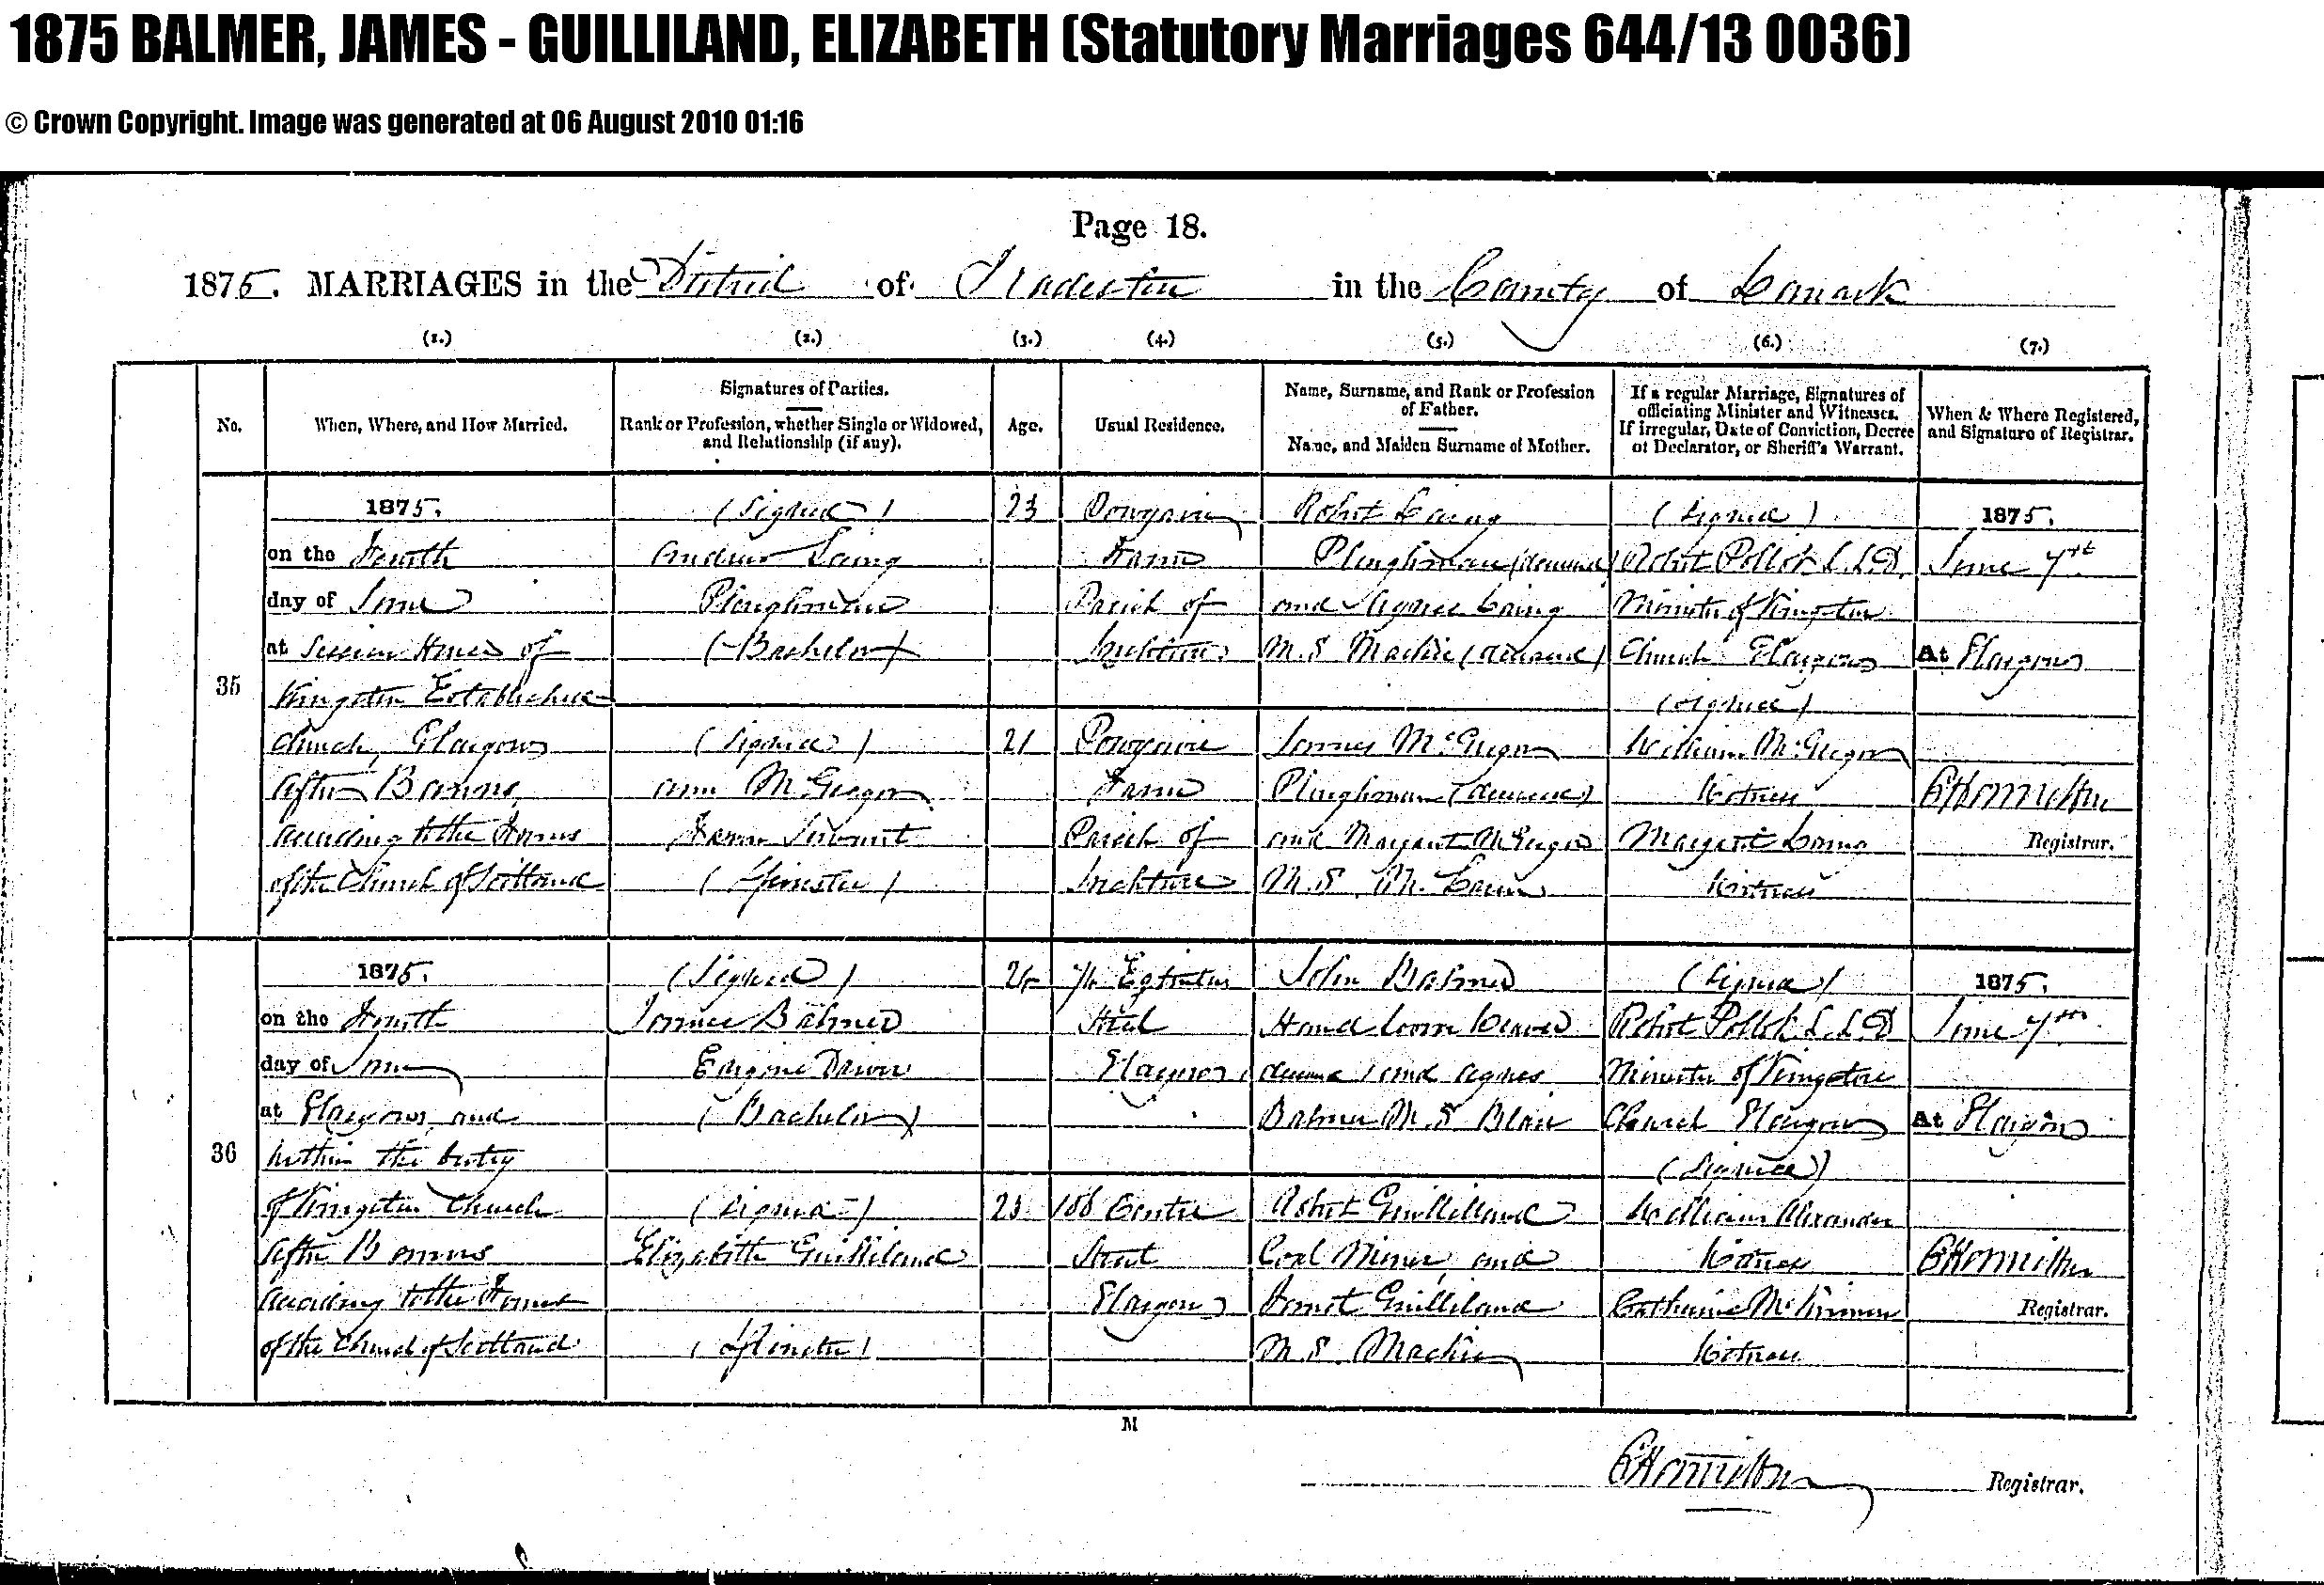 1875 BALMER, JAMES - GUILLILAND, ELIZABETH (Statutory Marriages 644/13 0036)
© Crown Copyright. Image was generated at 06 August 2010 01:16
Page 18.
1875. MARRIAGES in the District of Tradeston in the County of Lanark
(1.) (2.) (3.) (4.) (5.) (6.) (7.)
No.
When, Where, and How Married.
Signatures of Parties.
Rank or Profession, whether Single or Widowed,
and Relationship (if any).
Age.
Usual Residence.
Name, Surname, and Rank or Profession
of Father.
Name, and Maiden Surname of Mother.
If a regular Marriage, Signatures of
officiating Minister and Witnesses.
If irregular, Date of Conviction, Decree
of Declarator, or Sheriff's Warrant.
When & Where Registered,
and Signature of Registrar.
35
1875.
on the Fourth
day of June
at Session House of
Kingston Established
Church, Glasgow
After Banns,
according to the Forms
of the Church of Scotland
(Signed)
Andrew Laing
Ploughman
(Bachelor)
(Signed)
Ann McGregor
Farm Servant
(Spinster)
23
21
Farm
Parish of
Farm
Parish of
Robert Laing
Ploughman (deceased)
and Agnes Laing
M.S. Mackie (deceased)
James McGregor
Ploughman (deceased)
and Margaret McGregor
M.S.
(Signed)
Robert Pollok L.L.D.
Minister of Kingston
Church Glasgow
(Signed)
William McGregor
Witness
Margaret Laing
Witness
1875.
June 7th
At Glasgow
Hamilton
Registrar.
36
1875.
on the Fourth
day of June
at Glasgow and
within the Vestry
of Kingston Church
After Banns
according to the Forms
of the Church of Scotland
(Signed)
James Balmer
Engine Driver
(Bachelor)
(Signed)
Elizabeth Guilliland
(Spinster)
24
23
Eglinton
Street
Glasgow
Centre
Street
Glasgow
John Balmer
Hand Loom Weaver
deceased and Agnes
Balmer M.S. Blair
Robert Guilliland
Coal Miner, and
Janet Guilliland
M.S. Mackie
(Signed)
Robert Pollok L.L.D
Minister of Kingston
Church Glasgow
(Signed)
William Alexander
Witness
Catherine McKinnon
Witness
1875.
June 7th
At Glasgow
Hamilton
Registrar.
M
Hamilton Registrar.